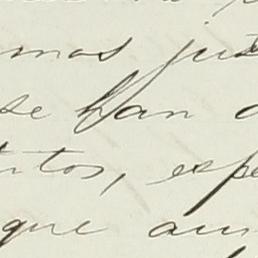 mas jus
se han
tos, espe
que aun